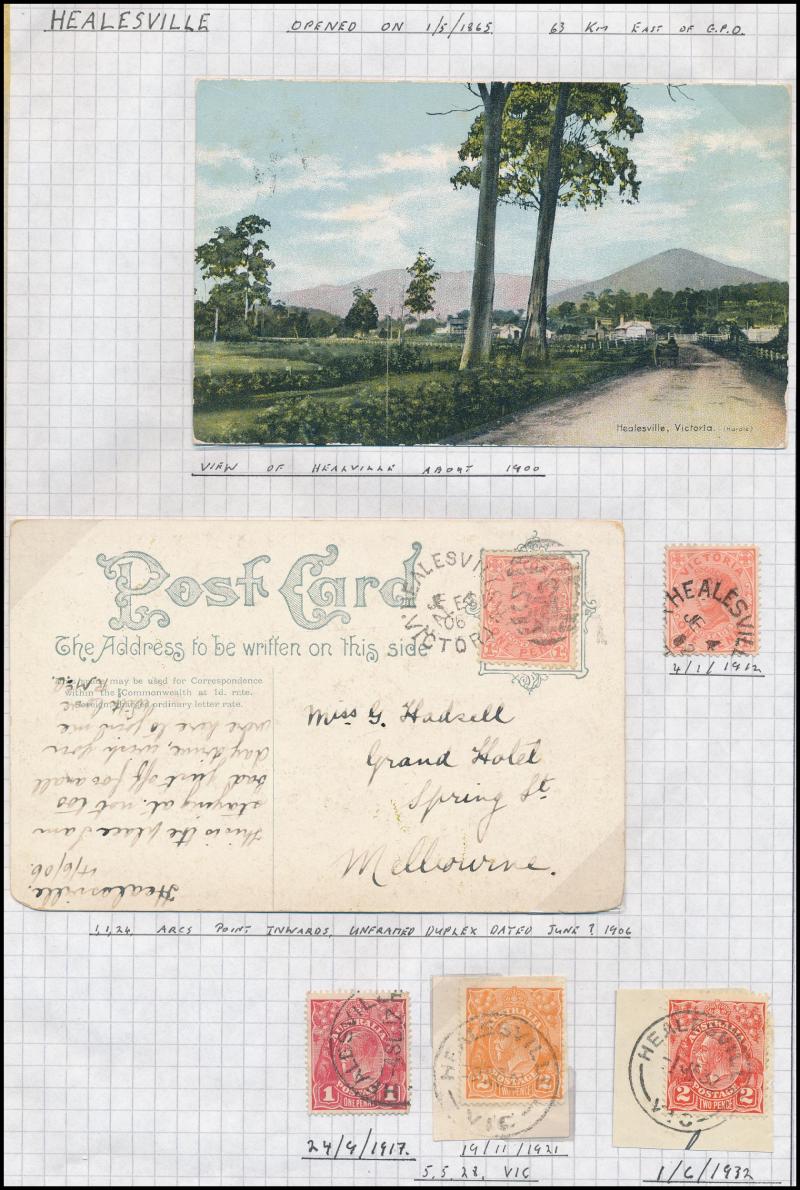 HEALESVILLE OPENED ON 1/5/1865 63 KM EAST OF G.P.O.
Healesville, Victoria. (Hardie)
VIEW OF HEALVILLE ABOUT 1900
Post Card
The Address to be written on this side
may be used for Correspondence
within the Commonwealth at 1d. rate.
Foreign ordinary letter rate.
HEALESVILLE
JE
06
VICTORIA
Miss G. Hadsell
Grand Hotel
Spring St
Melbourne.
Healesville.
4/6/06
this is the place I am
staying at. not too
bad, just off for a all
day drive, wish you
were here to join me
VICTORIA
HEALESVILLE
JE 4
12
4/1/1912
1,1,24, ARCS POINT INWARDS, UNFRAMED DUPLEX DATED JUNE ? 1906
HEALESVILLE
AUSTRALIA
1 1
POSTAGE
ONE PENNY
HEALESVILLE
AUSTRALIA
2 2
POSTAGE
TWO PENCE
VIC
HEALESVILLE
AUSTRALIA
2 2
POSTAGE
TWO PENCE
VIC
24/9/1917. 19/11/1921 1/6/1932
5,5,28, VIC